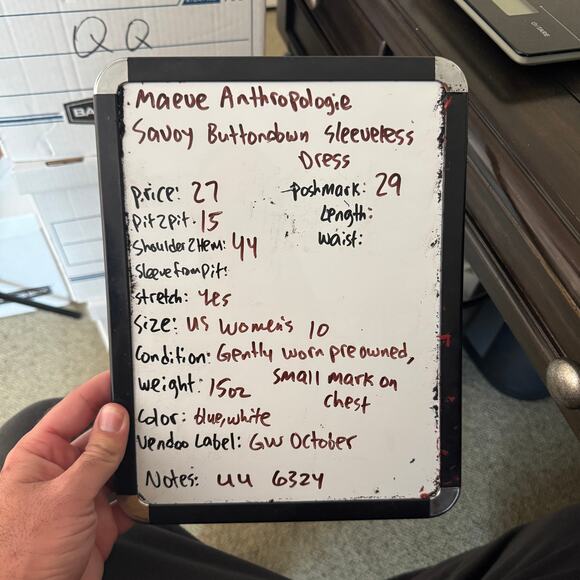 QQ
BA
Maeve Anthropologie
Savoy Buttondown Sleeveless
Dress
Price: 27
Poshmark: 29
Pit2Pit. 15
Length:
Shoulder2Hem: 44
Waist:
Sleeve from Pit:
Stretch: Yes
Size: US Women's 10
Condition: Gently worn preowned,
small mark on
chest
Weight: 15oz
Color: blue, white
Vendoo Label: GW October
Notes: UU 6324